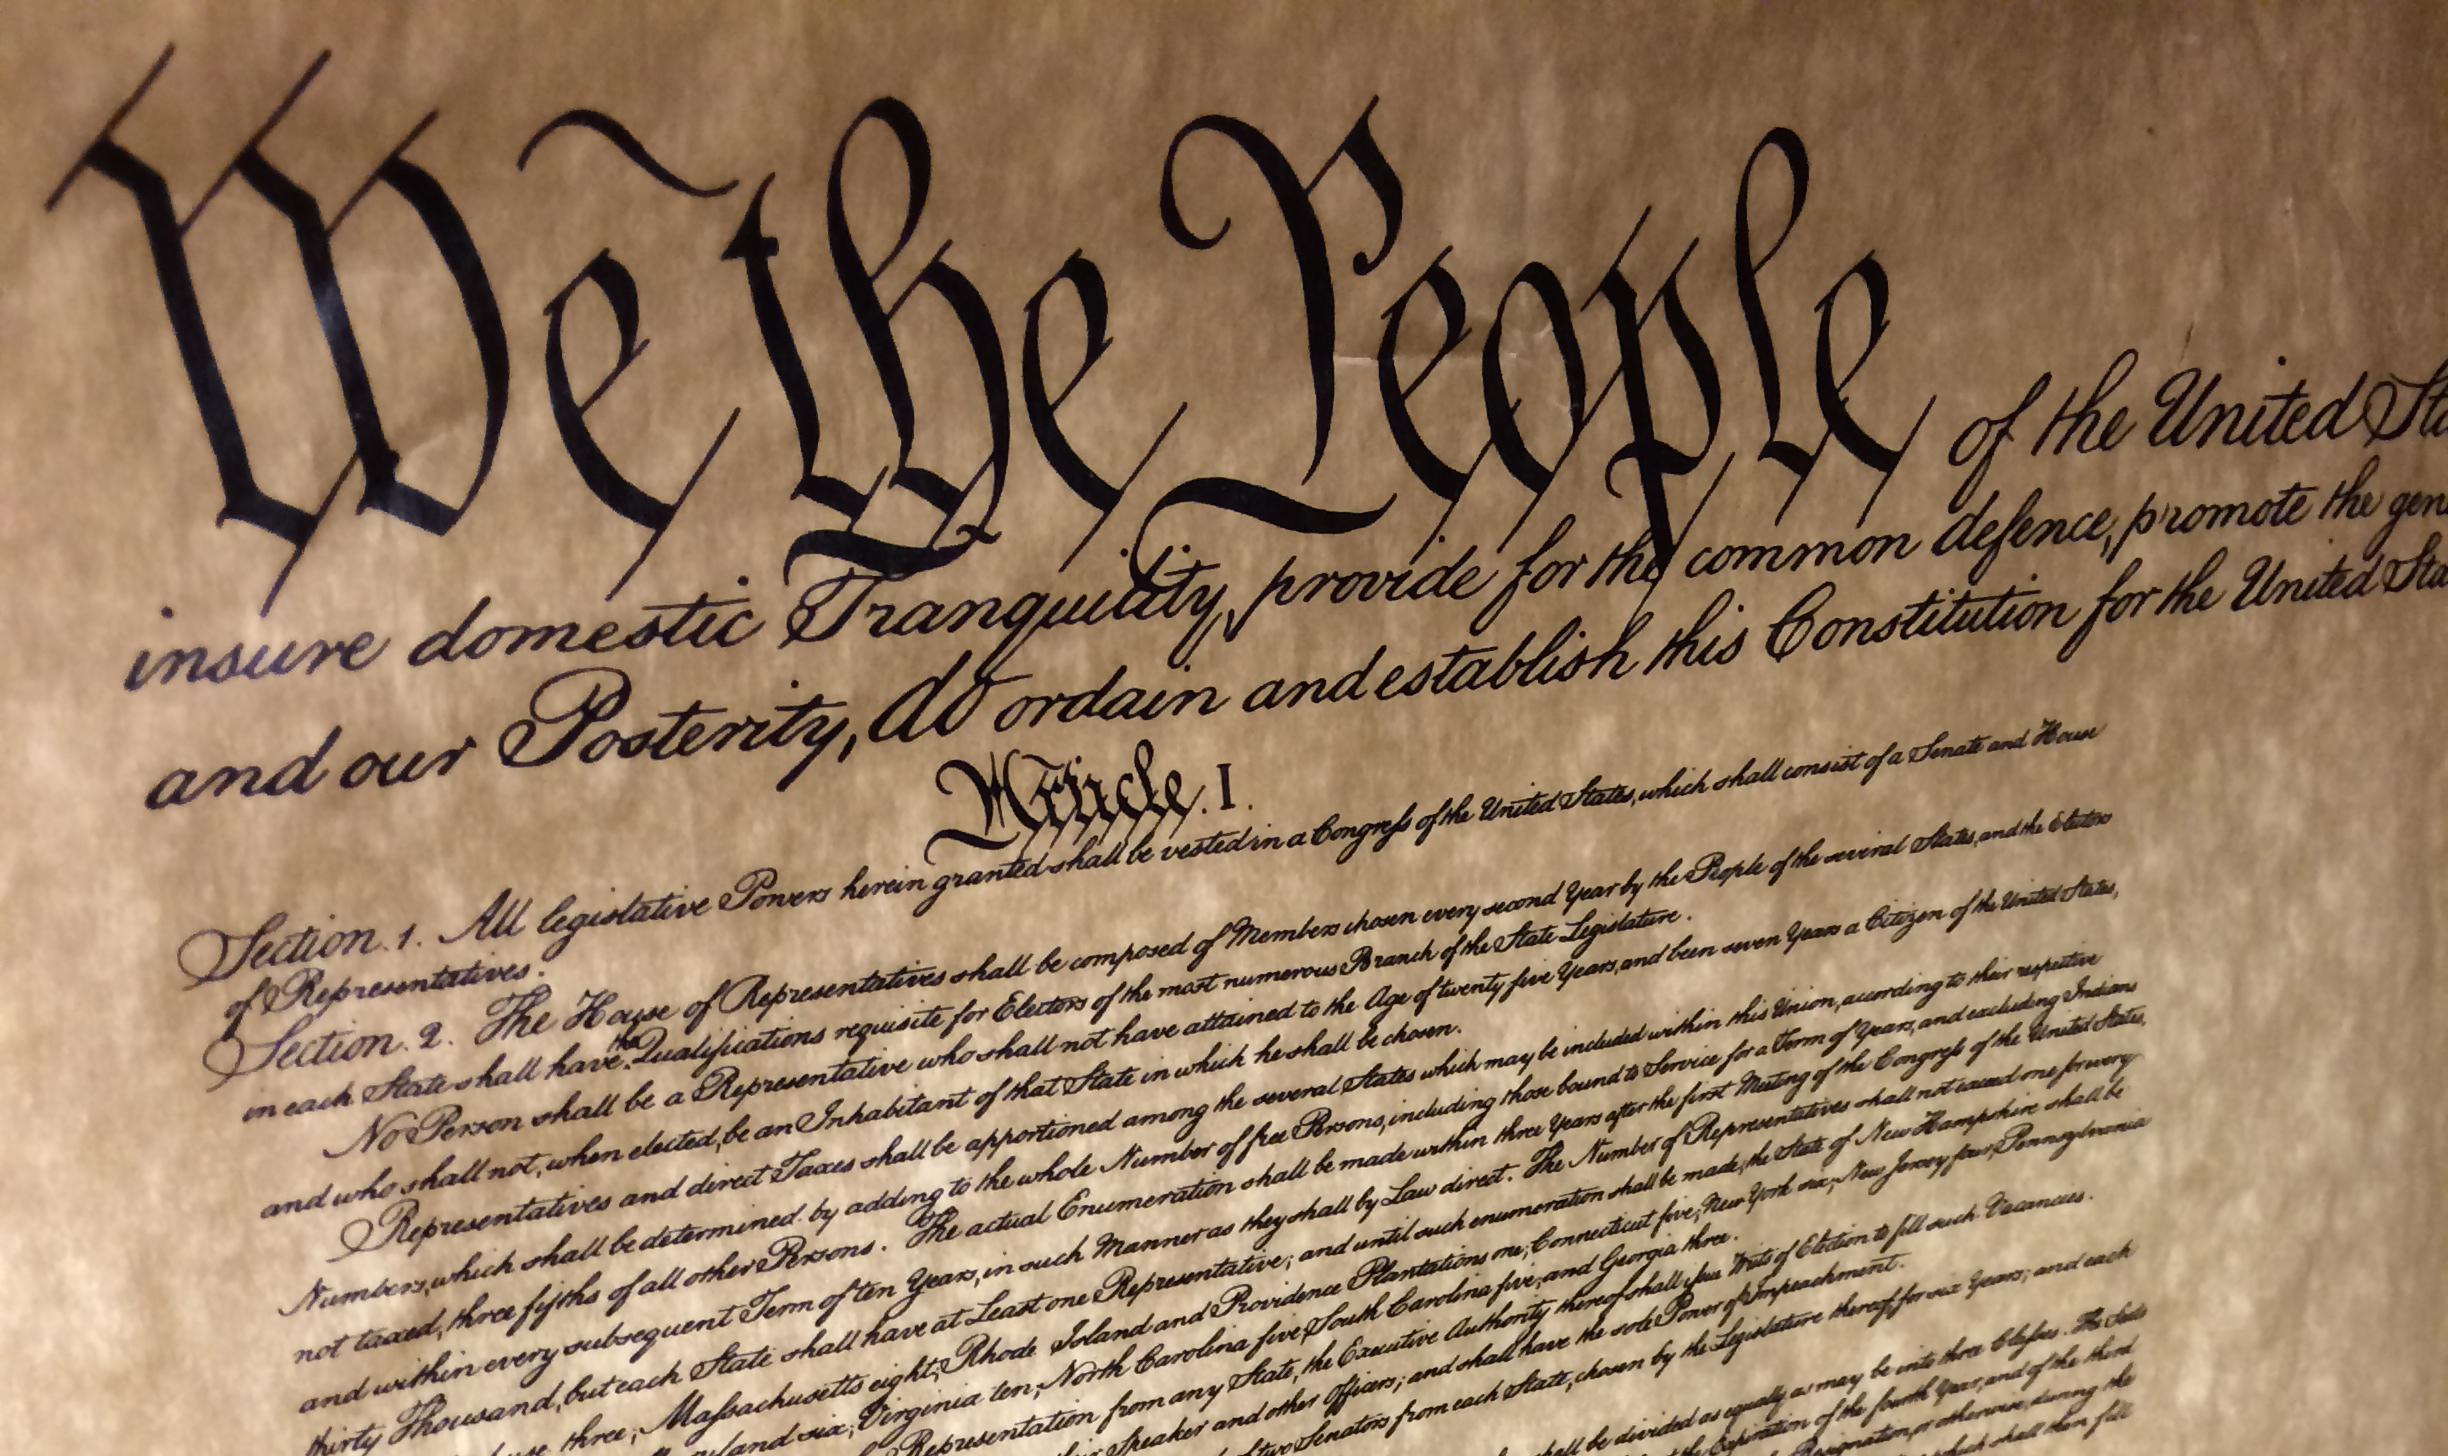 We the People of the United Sta
insure domestic Tranquility, provide for the common defence, promote the gen
and our Posterity, do ordain and establish this Constitution for the United Sta
Article. I.
Section. 1. All legislative Powers herein granted shall be vested in a Congreſs of the United States, which shall consist of a Senate and House
of Representatives.
Section. 2. The House of Representatives shall be composed of Members chosen every second Year by the People of the several States, and the Electors
in each State shall have the Qualifications requisite for Electors of the most numerous Branch of the State Legislature.
No Person shall be a Representative who shall not have attained to the Age of twenty five Years, and been seven Years a Citizen of the United States,
and who shall not, when elected, be an Inhabitant of that State in which he shall be chosen.
Representatives and direct Taxes shall be apportioned among the several States which may be included within this Union, according to their respective
Numbers, which shall be determined by adding to the whole Number of free Persons, including those bound to Service for a Term of Years, and excluding Indians
not taxed, three fifths of all other Persons. The actual Enumeration shall be made within three Years after the first Meeting of the Congreſs of the United States,
and within every subsequent Term of ten Years, in such Manner as they shall by Law direct. The Number of Representatives shall not exceed one for every
thirty Thousand, but each State shall have at Least one Representative; and until such enumeration shall be made, the State of New Hampshire shall be
three, Maſsachusetts eight, Rhode Island and Providence Plantations one, Connecticut five, New York six, New Jersey four, Pennsylvania
six, Virginia ten, North Carolina five, South Carolina five, and Georgia three.
Representation from any State, the Executive Authority thereof shall iſsue Writs of Election to fill such Vacancies.
Speaker and other Officers; and shall have the sole Power of Impeachment.
two Senators from each State, chosen by the Legislature thereof, for six Years; and each
shall be divided as equally as may be into three Claſses. The Seats
the Expiration of the fourth Year, and of the third
Resignation, or otherwise, during the
which shall then fill